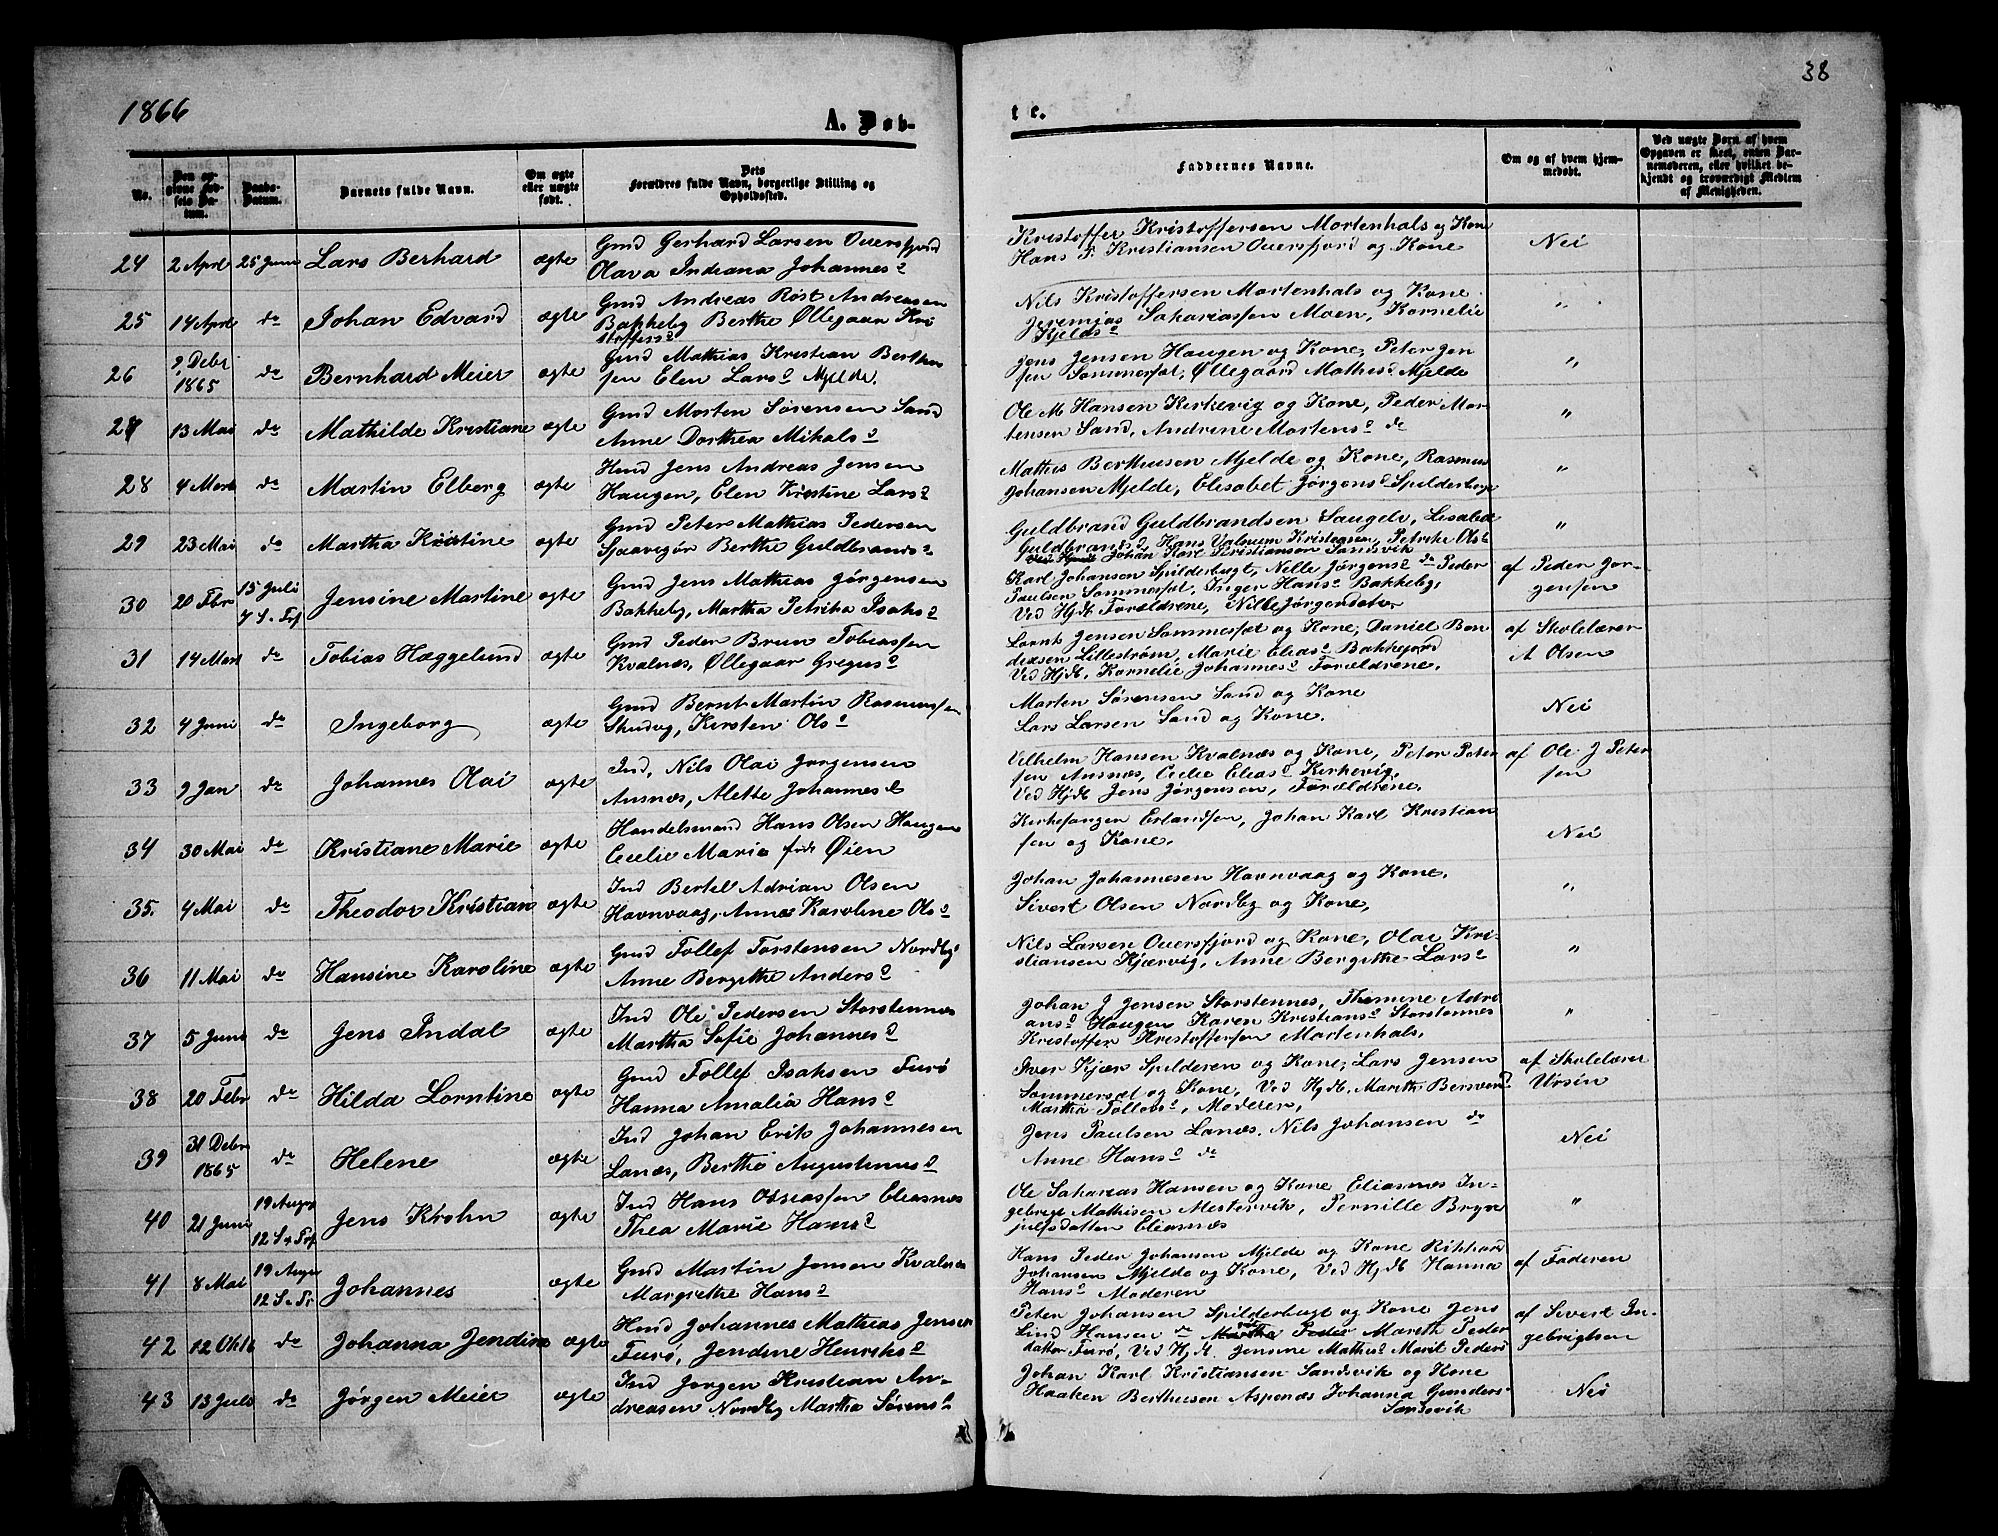 1866
A. Døb-
te.
38
No.
Den op-
givne Fød-
sels Da-
tum.
Daabs-
Datum.
Barnets fulde Navn.
Om ægte
eller uægte
født.
Dets
Forældres fulde Navn, borgerlige Stilling og
Opholdssted.
Faddernes Navne.
Om og af hvem hjem-
medøbt.
Ved uægte Børn af hvem
Opgaven er skeet, enten Bar-
nemoderen, eller hvilket be-
kjendt og troværdigt Medlem
af Menigheden.
24 2 Aprl 25 Juni Lars Berhard ægte
Gmd Gerhard Larsen Oversfjord
Olava Indiana Johannesd
Kristoffer Kristoffersen Mortenhals og Kone
Hans P. Kristiansen Oversfjord og Kone
Nei
25 14 Aprl do Johan Edvard ægte
Gmd Andreas Røst Andreasen
Bakkeby Berthe Øllegaar Kri
stoffersd
Nils Kristoffersen Mortenhals og Kone
Jeremias Sahariassen Moen, Kornelie
Kjeldsd
"
26 9 Debr
1865 do Bernhard Meier ægte
Gmd Mathias Kristian Berthe
sen Elen Larsd Mjelde.
Jens Jensen Haugen og Kone, Peter Jen
sen Sommersæt, Øllegaard Mathisd Mjelde
"
27 13 Mai do Mathilde Kristiane ægte
Gmd Morten Sørensen Sand
Anne Dorthea Mikalsd
Ole M Hansen Kirkevig og Kone, Peder Mor
tensen Sand, Andrine Mortensd do
"
28 4 Mars do Martin Elberg ægte
Hmd Jens Andreas Jensen
Haugen, Elen Kristine Larsd
Mathis Berthusen Mjelde og Kone, Rasmus
Johansen Mjelde, Elisabet Jørgensd Spilderbugt
"
29 23 Mai do Martha Kristine ægte
Gmd Peter Mathias Pedersen
Sjaavigør Berthe Guldbrandsd
Guldbrand Guldbrandsen Saugelv, Lisabet
Guldbrandsd, Hans Valnum Kristensen, Petrike Olsd
Johan Karl Kristiansen Sandsvik
"
30 20 Fbr 15 Juli
7 S. Trf Jensine Martine ægte
Gmd Jens Mathias Jørgensen
Bakkeby, Martha Petrika Isaksd
Karl Johanson Spilderbugt, Nelle Jørgensd do Peder
Paulsen Sommersæt, Inger Hansd Bakkeby,
Ved Hjdb Forældrene, Nille Jørgensdatter
af Peder Jør-
gensen
31 14 Mars do Tobias Hæggelund ægte
Gmd Peder Brun Tobiassen
Kvalnæs, Øllegaar Gregusd
Lornt Jensen Sommersæt og Kone, Daniel Ben
diksen Lillestrøm, Marie Eliasd Bakkejord
Ved Hjdb, Kornelie Johannesd Forældrene,
af Skolelærer
A Olsen
32 4 Juni do Ingeborg ægte
Gmd Bernt Martin Rasmussen
Skudvg, Kirsten Olsd
Morten Sørensen Sand og Kone
Lars Larsen Sand og Kone.
Nei
33 9 Jan do Johannes Olai ægte
Ind, Nils Olai Jørgensen
Ansnæs, Alette Johannesd
Vilhelm Hansen Kvalnæs og Kone, Peter Peter
sen Ansnæs, Cecelie Eliasd Kirkevig,
Ved Hjdb Jens Jørgensen, Forældrene.
af Ole J Peter
sen
34 30 Mai do Kristiane Marie ægte
Handelsmand Hans Olsen Haugen
Cecelie Marie født Øien
Kirkesanger Erlandsen, Johan Karl Kristian
sen og Kone.
Nei
35. 4 Mai do Theodor Kristian ægte
Ind Bertel Adrian Olsen
Havnvaag, Anne Karoline Olsd
Johan Johannesen Havnvaag og Kone,
Sivert Olsen Nordby og Kone,
"
36 11 Mai do Hansine Karoline ægte
Gmd Tollef Torstensen Nordby
Anne Bergithe Andersd
Nils Larsen Oversfjord og Kone, Olai Kri-
stiansen Kjærvig, Anne Bergithe Larsd
"
37 5 Juni do Jens Indal ægte
Ind Ole Pedersen Storstennes
Martha Sofie Johannesd
Johan J Jensen Storstennes, Thomine Adri
ansd Haugen Karen Kristiansd Storstennes
Kristoffer Kristoffersen Mortenhals,
"
38 20 Febr do Hilda Lorntine ægte
Gmd Tollef Isaksen Furø
Hanna Amalia Hansd
Iver Kjær Spilderen og Kone, Lars Jensen
Sommersæt og Kone, Ved Hjdb. Mareth Bersvend
Martha Tollevsd, Moderen,
af Skolelærer
Ursin
39 31 Debr
1865 do Helene ægte
Ind Johan Erik Johannesen
Lanæs, Berthe Augustinusd
Jens Paulsen Lanæs. Nils Johansen do
Anne Hansd do
Nei
40 21 Juni 19 August
12 S. Trf Jens Krohn ægte
Ind Hans Osseassen Eliasnæs
Thea Marie Hansd
Ole Saharias Hansen og Kone Eliasnæs In-
gebrigt Mathisen Mestervik, Pernille Bryn
julfsdatter Eliasnæs
"
41 8 Mai 19 August
12 S. Tr Johannes ægte
Gmd Martin Jensen Kvalnæs
Margrethe Hansd
Hans Peder Johansen Mjelde og Kone Rikhard
Johansen Mjelde og Kone, Ved Hjdb Hanna
Hansd Moderen
af Faderen
42 12 Oktb do Johanna Jendine ægte
Hmd Johannes Mathias Jensen
Furø, Jendine Henriksd
Peter Johansen Spilderbugt og Kone Jens
Lind Hansen do Martha Peder Mareth Peder
datter Furø, Ved Hjdb. Jensine Mathisd Marit Pedersd
af Sivert In-
gebrigtsen
43 13 Juli do Jørgen Meier ægte
Ind Jørgen Kristian An-
dreasen Nordby Martha Sørensd
Johan Karl Kristiansen Sandsvik og Kone
Haaken Berthusen Aspenæs Johanna Gundersd
Sandsvik
Nei